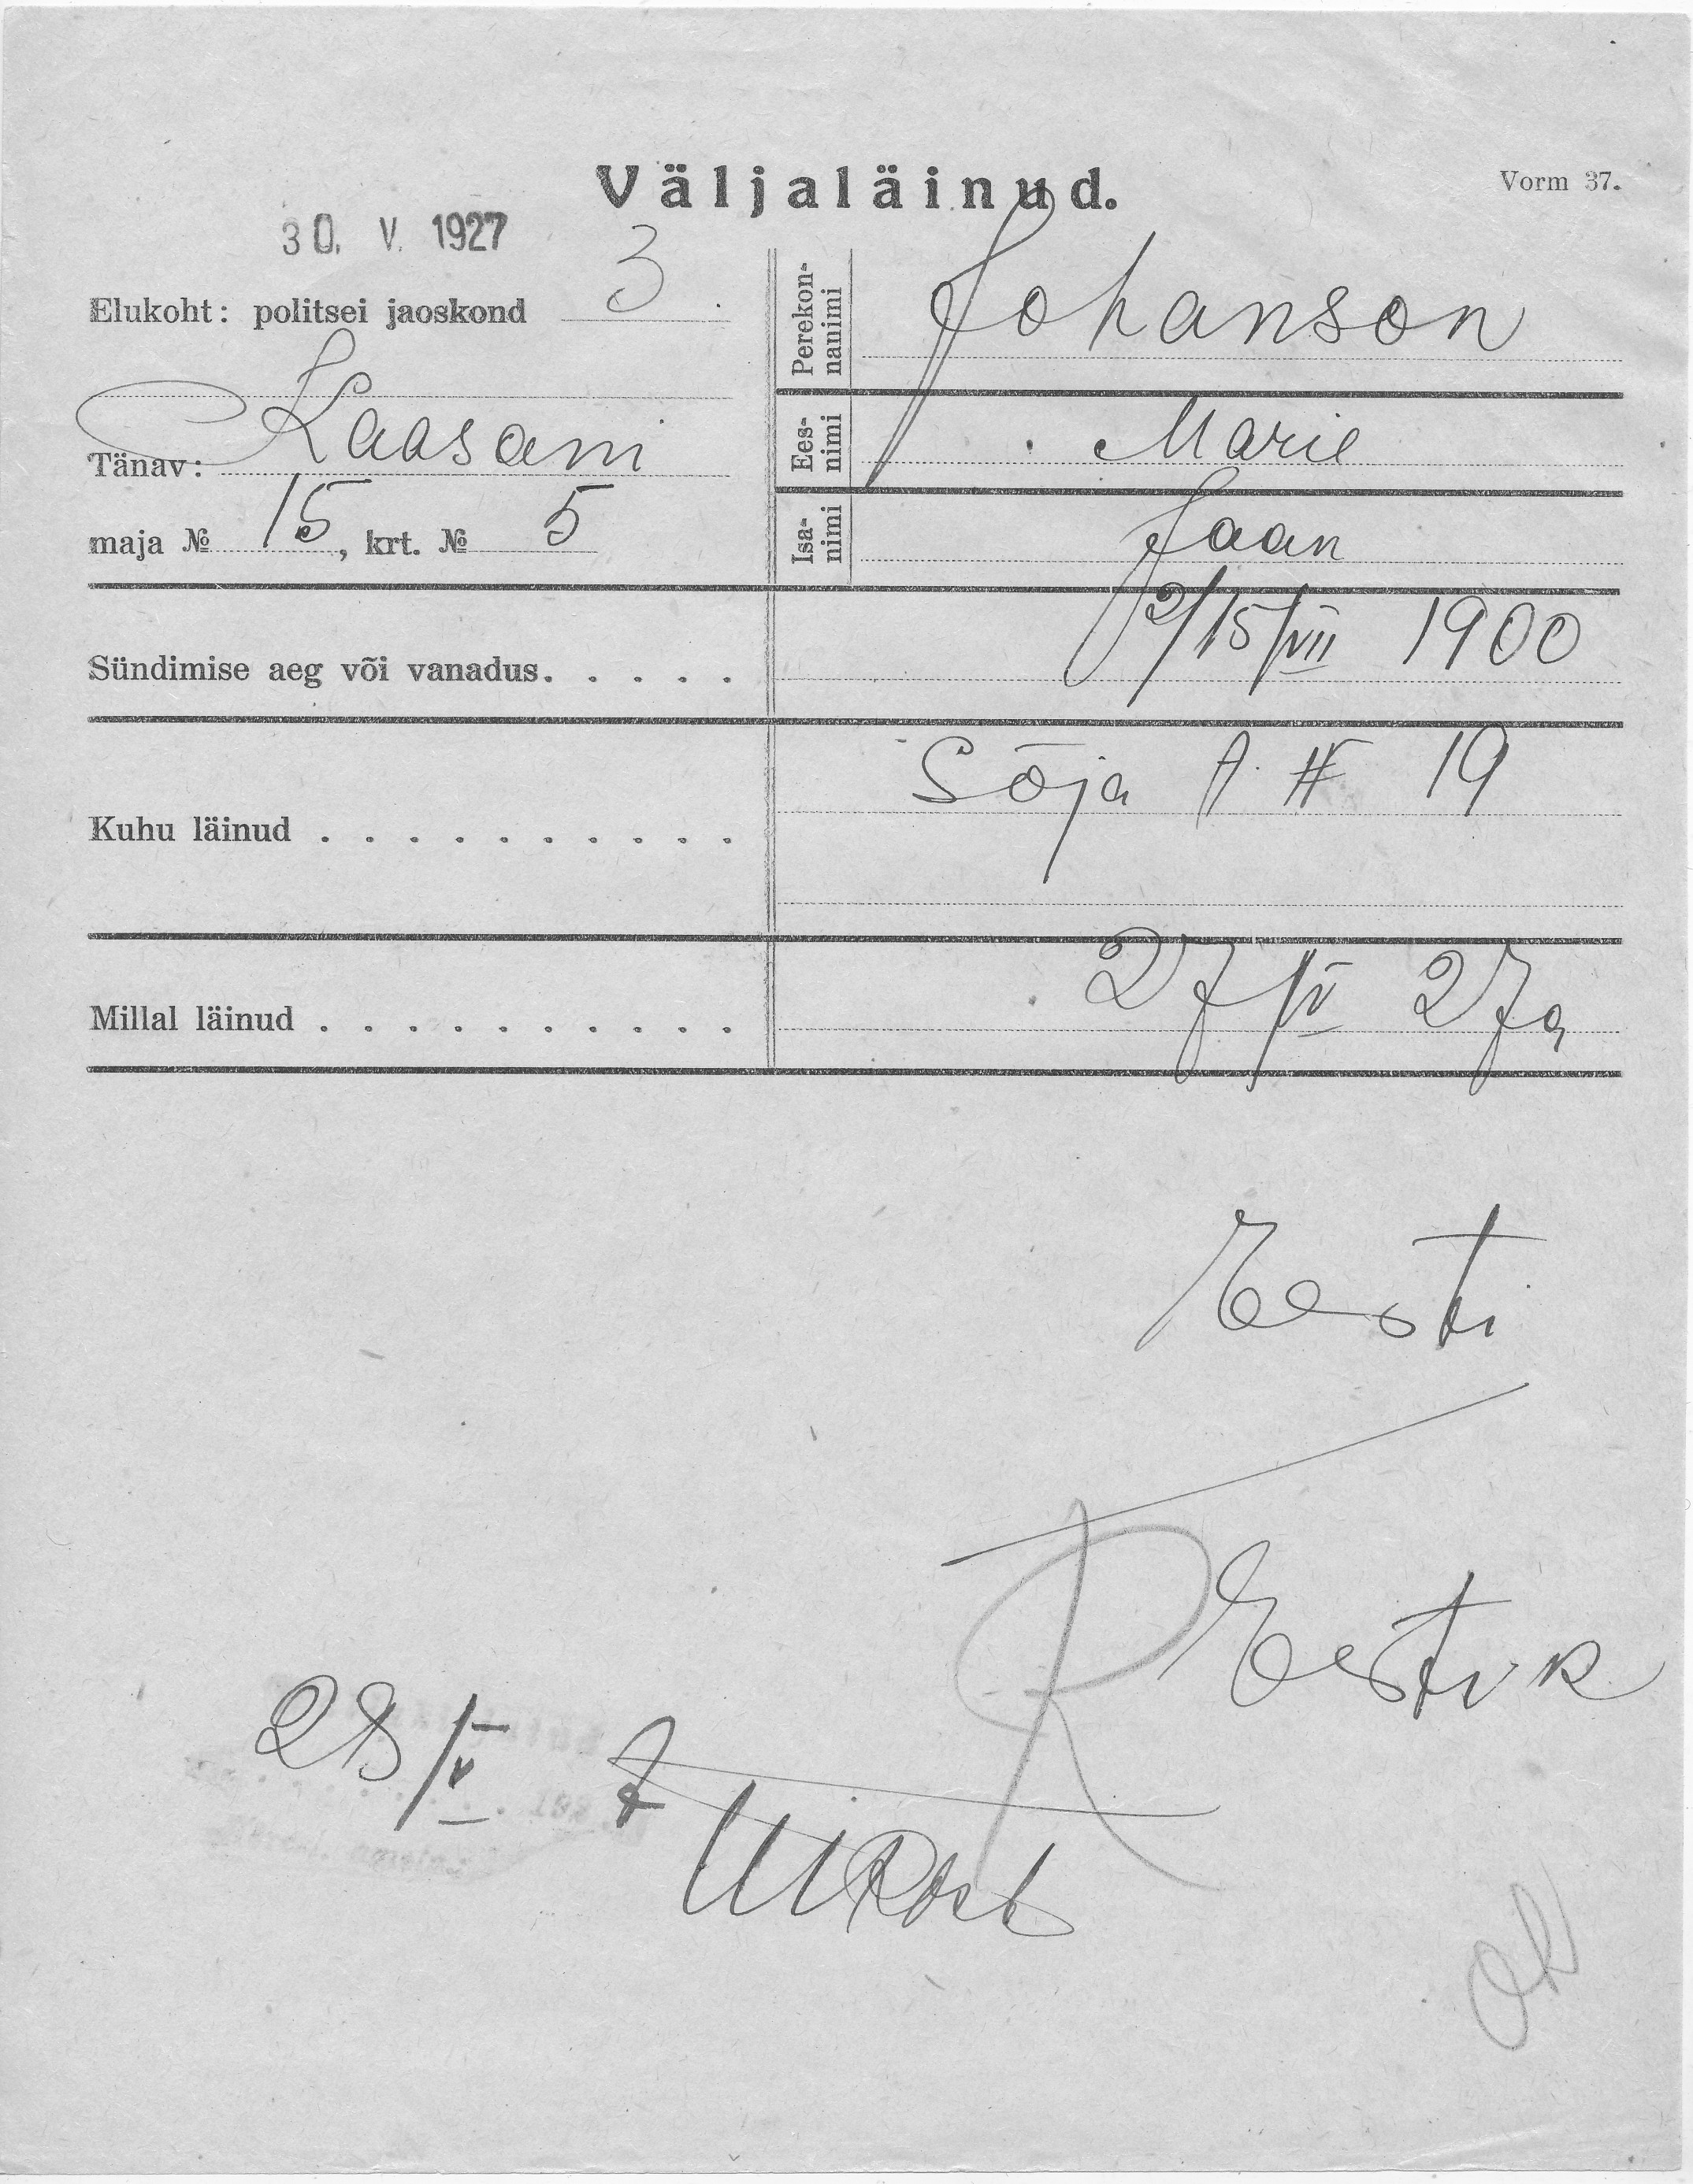 Väljaläinud.
Vorm 37.
30. V. 1927
Elukoht: politsei jaoskond 3
Tänav: Kaasani
maja № 15, krt. № 5
Perekon-
nanimi
Johanson
Ees-
nimi
Marie
Isa-
nimi
Jaan
Sündimise aeg või vanadus. . . . . 2/15/VII 1900
Kuhu läinud . . . . . . . . . . Sõja t. # 19
Millal läinud . . . . . . . . . . 27/V 27a
Eesti
R
Eestik
28/V